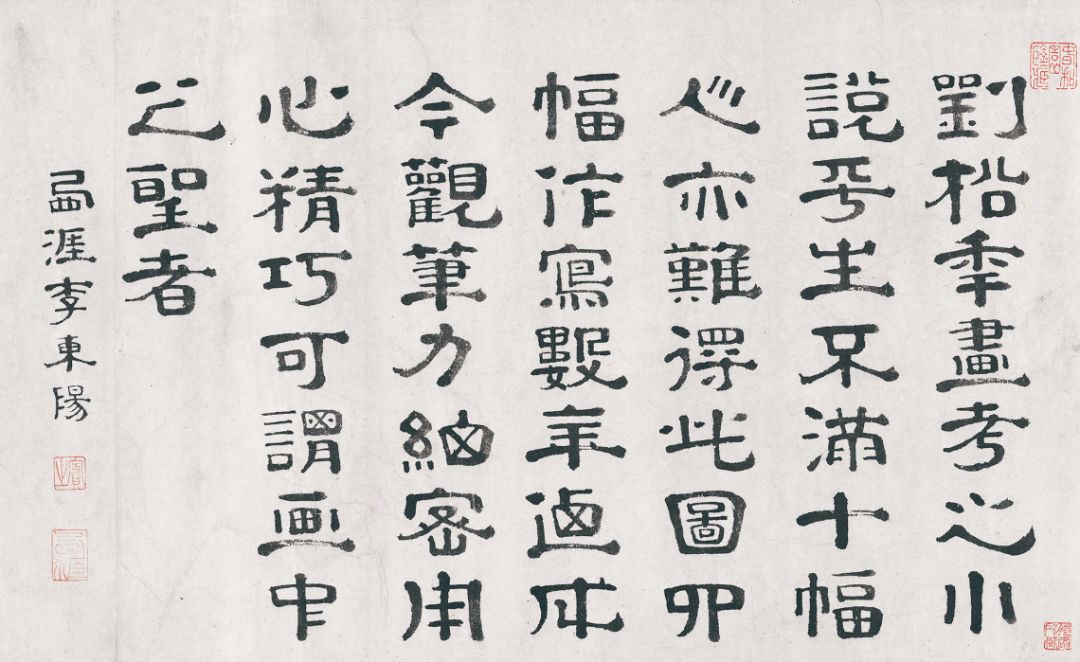 劉柗秊畫考之小
說平生不滿十幅
亦難得此圖四
幅作寫數年迺成
今觀筆力細密用
心精巧可謂画中
之聖者
西涯李東陽